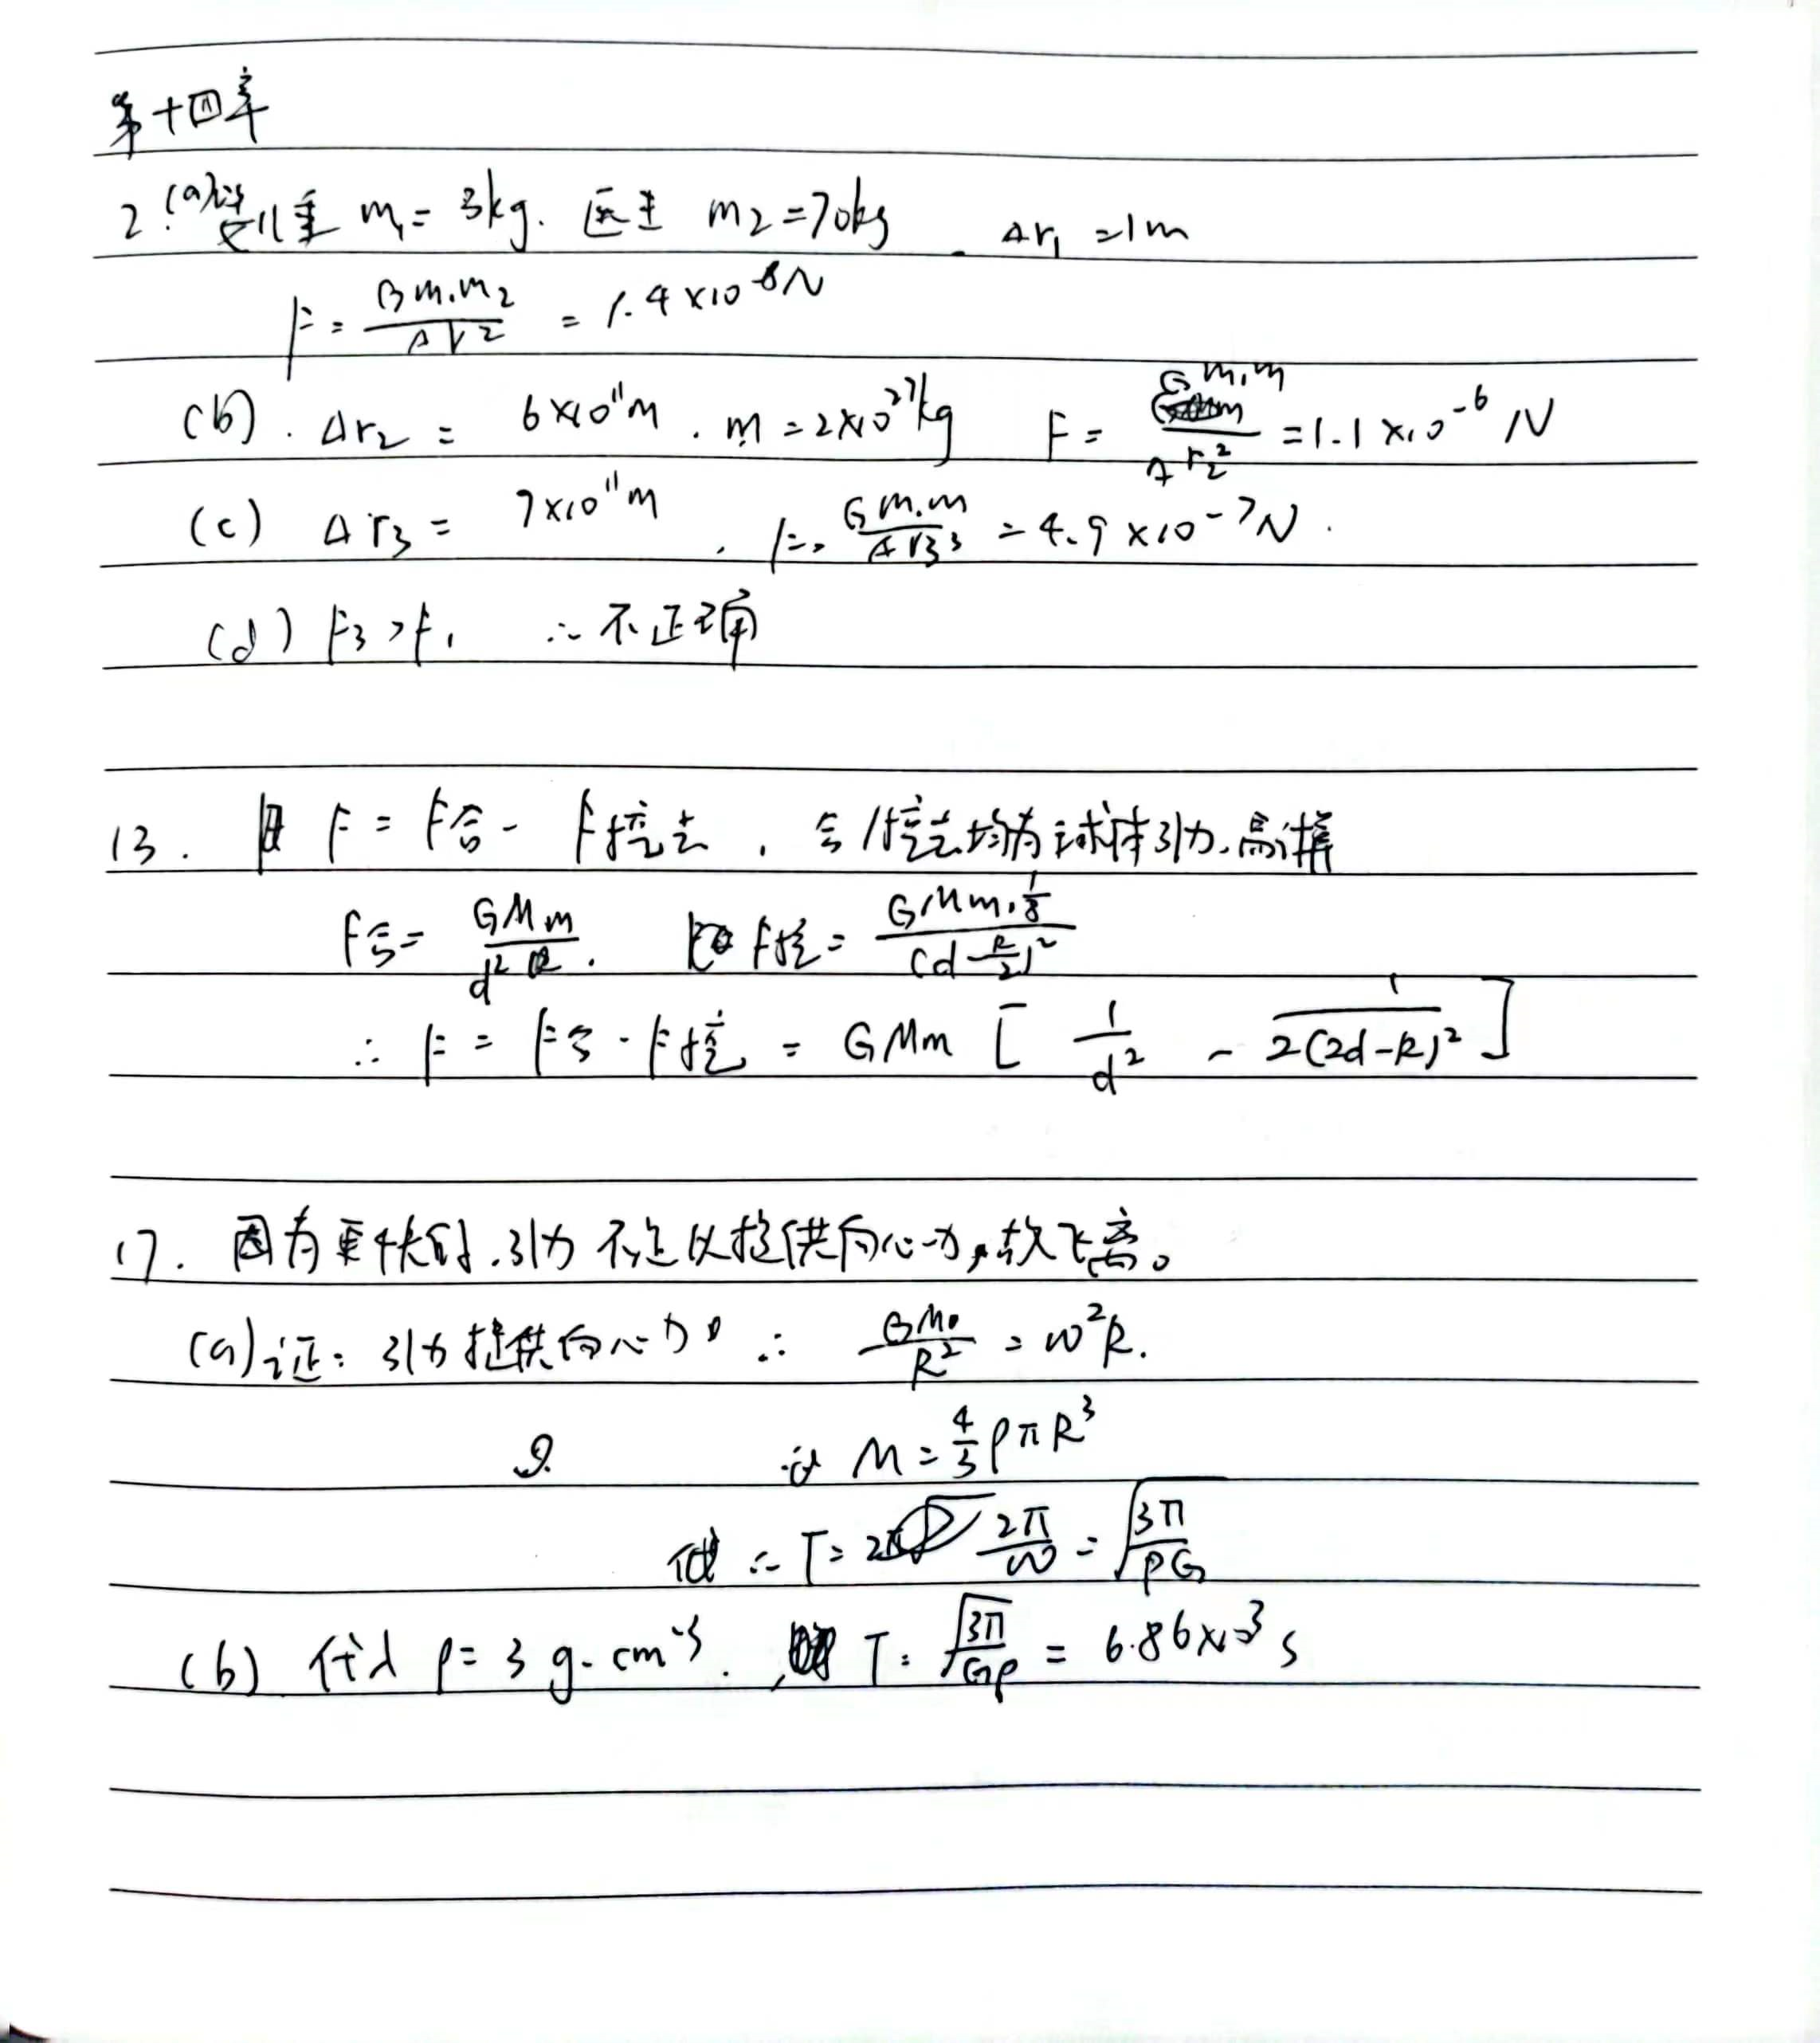 第十四章
2. (a) 婴儿重 m₁ = 3kg. 医生 m2 = 70kg . Δr₁ = 1m
F = Gm₁m₂/Δr² = 1.4×10⁻⁸N
(b). Δr₂ = 6×10¹¹m . m = 2×10²⁷kg F = Gm₁m/Δr₂² = 1.1×10⁻⁶ N
(c) Δr₃ = 7×10¹¹m , F = Gm₁m/Δr₃³ = 4.9×10⁻⁷N .
(d) F₃ > F₁ ∴ 不正确
13. F = F合 - F挖去 , 合/挖去均为球体引力,易计算
F合 = GMm/d² . F挖 = GMm·⅛/(d-R/2)²
∴ F = F合 - F挖 = GMm [ 1/d² - 1/2(2d-R)² ]
17. 因为更快时,引力不足以提供向心力,故飞离。
(a) 证: 引力提供向心力 ∴ GM/R² = ω²R.
M = 4/3 ρπR³
∴ T = 2π/ω = √(3π/ρG)
(b) 代入 ρ = 3 g·cm⁻³. T = √(3π/Gρ) = 6.86×10³ s